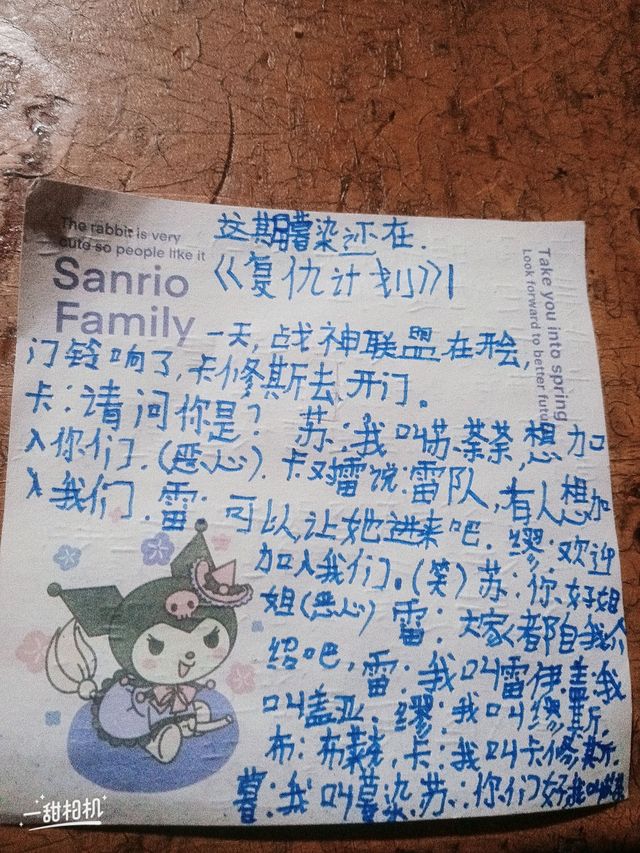 The rabbit is very
cute so people like it
Sanrio
Family
Take you into spring
Look forward to better futu
这期暮染还在.
《复仇计划》1
一天,战神联盟在开会,
门铃响了,卡修斯去开门。
卡:请问你是? 苏:我叫苏荼荼,想加
入你们.(恶心). 卡对雷说:雷队,有人想加
入我们.雷:可以,让她进来吧.缪:欢迎
加入我们.(笑)苏:你好姐
姐(恶心) 雷:大家都自我介
绍吧,雷:我叫雷伊盖:我
叫盖亚.缪:我叫缪斯.
布:布莱克,卡:我叫卡修斯
暮:我叫暮染.苏.你们好我叫
一甜相机